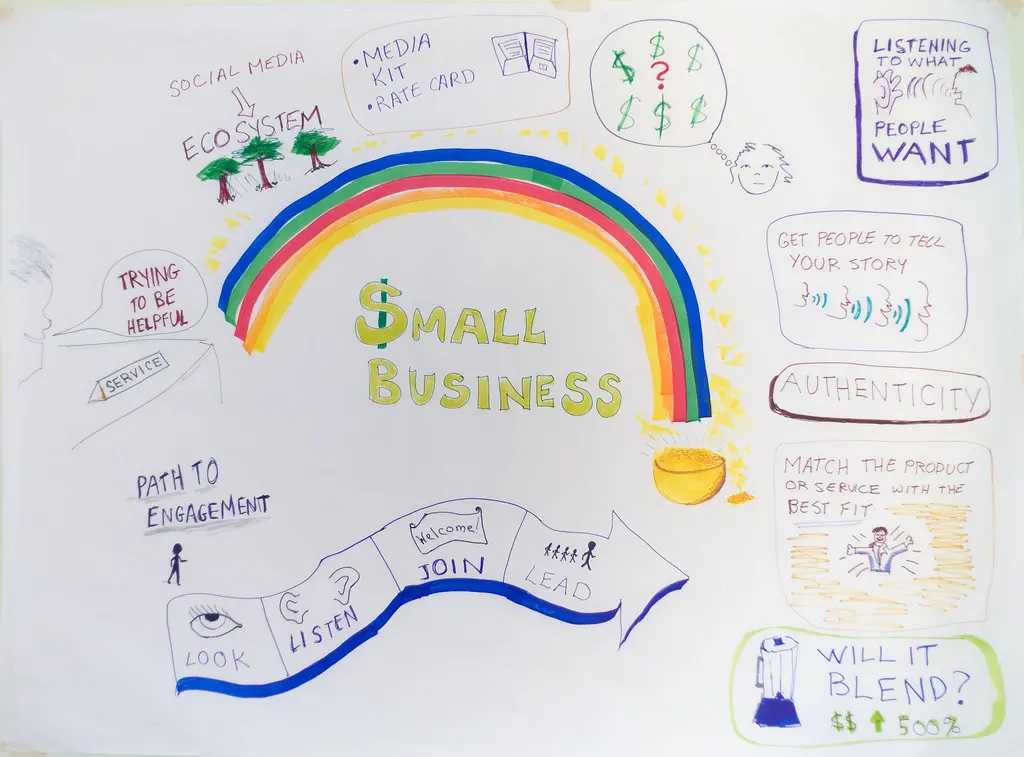 SOCIAL MEDIA
ECOSYSTEM
• MEDIA
KIT
• RATE CARD
$ $ $
?
$ $ $
LISTENING
TO WHAT
PEOPLE
WANT
TRYING
TO BE
HELPFUL
SERVICE
$MALL
BUSINESS
GET PEOPLE TO TELL
YOUR STORY
AUTHENTICITY
MATCH THE PRODUCT
OR SERVICE WITH THE
BEST FIT
PATH TO
ENGAGEMENT
LOOK
LISTEN
Welcome!
JOIN
LEAD
WILL IT
BLEND?
$$ 500%